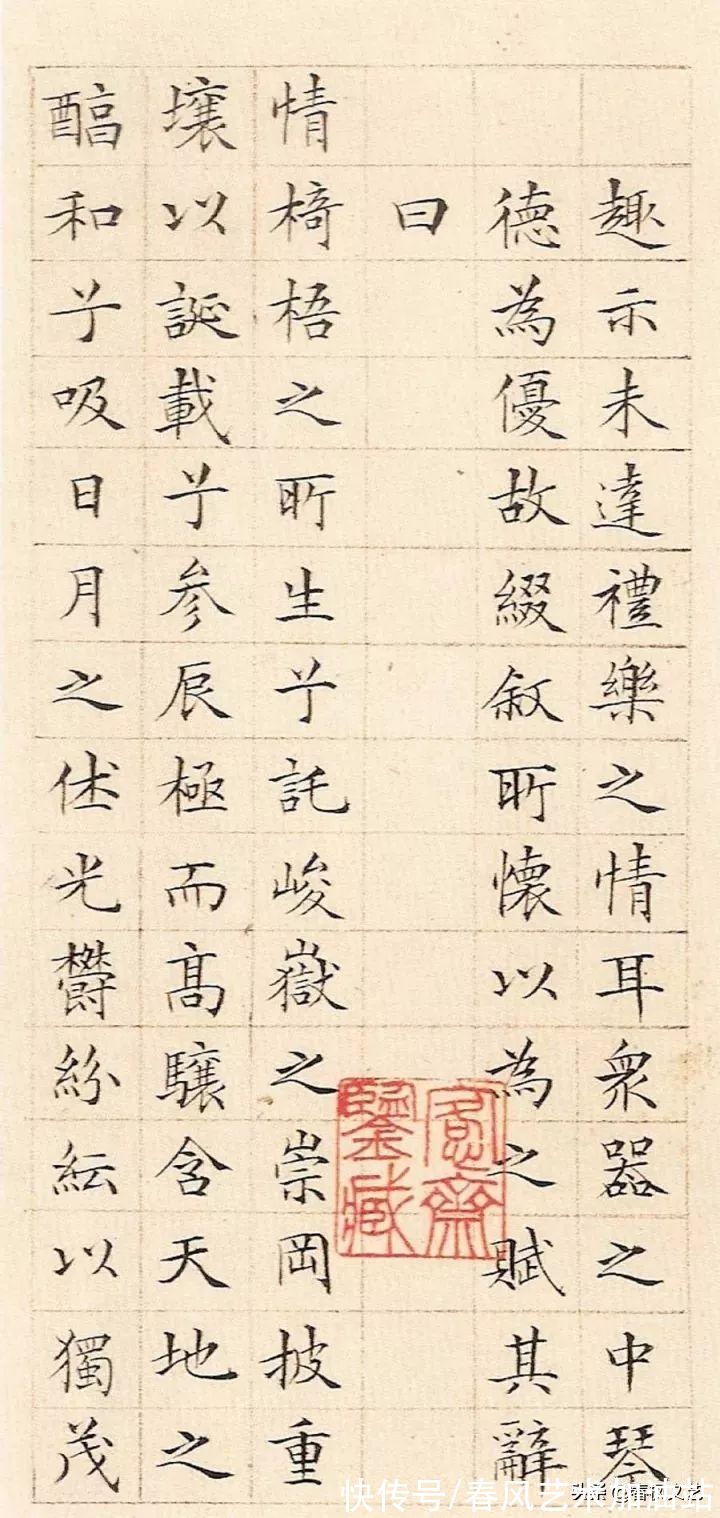 趣示未達禮樂之情耳衆器之中琴
德為優故綴叙所懷以為之賦其辭
曰
情椅梧之所生兮託峻嶽之崇岡披重
壤以誕載兮參辰極而髙驤含天地之
醕和兮吸日月之休光鬱紛紜以獨茂
愙齋
鑒藏
快传号/春风艺术加油站